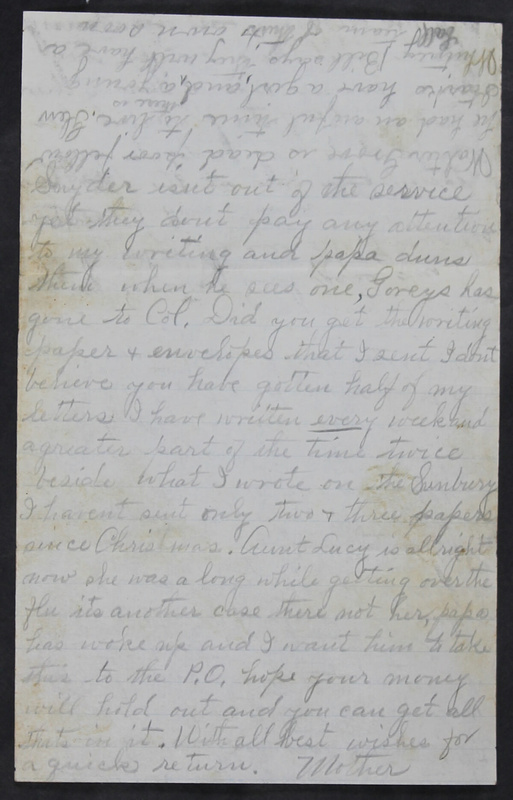 Snyder isn't out of the service
yet they don't pay any attention
to my writing and papa duns
them when he sees one, Goreys has
gone to Col. Did you get the writing
paper & envelopes that I sent I dont
believe you have gotten half of my
letters I have written every week and
a greater part of the time twice
beside what I wrote on the Sunbury
I havent sent only two & three papers
since Christmas. Aunt Lucy is allright
now she was a long while getting over the
flu its another case there not her, papa
has woke up and I want him to take
this to the P.O. hope your money
will hold out and you can get all
thats in it. With all best wishes for
a quick return. Mother
is dead poor fellow
he had an awful time
have a girl, and a young
Bill says they will have a
team of their own soon